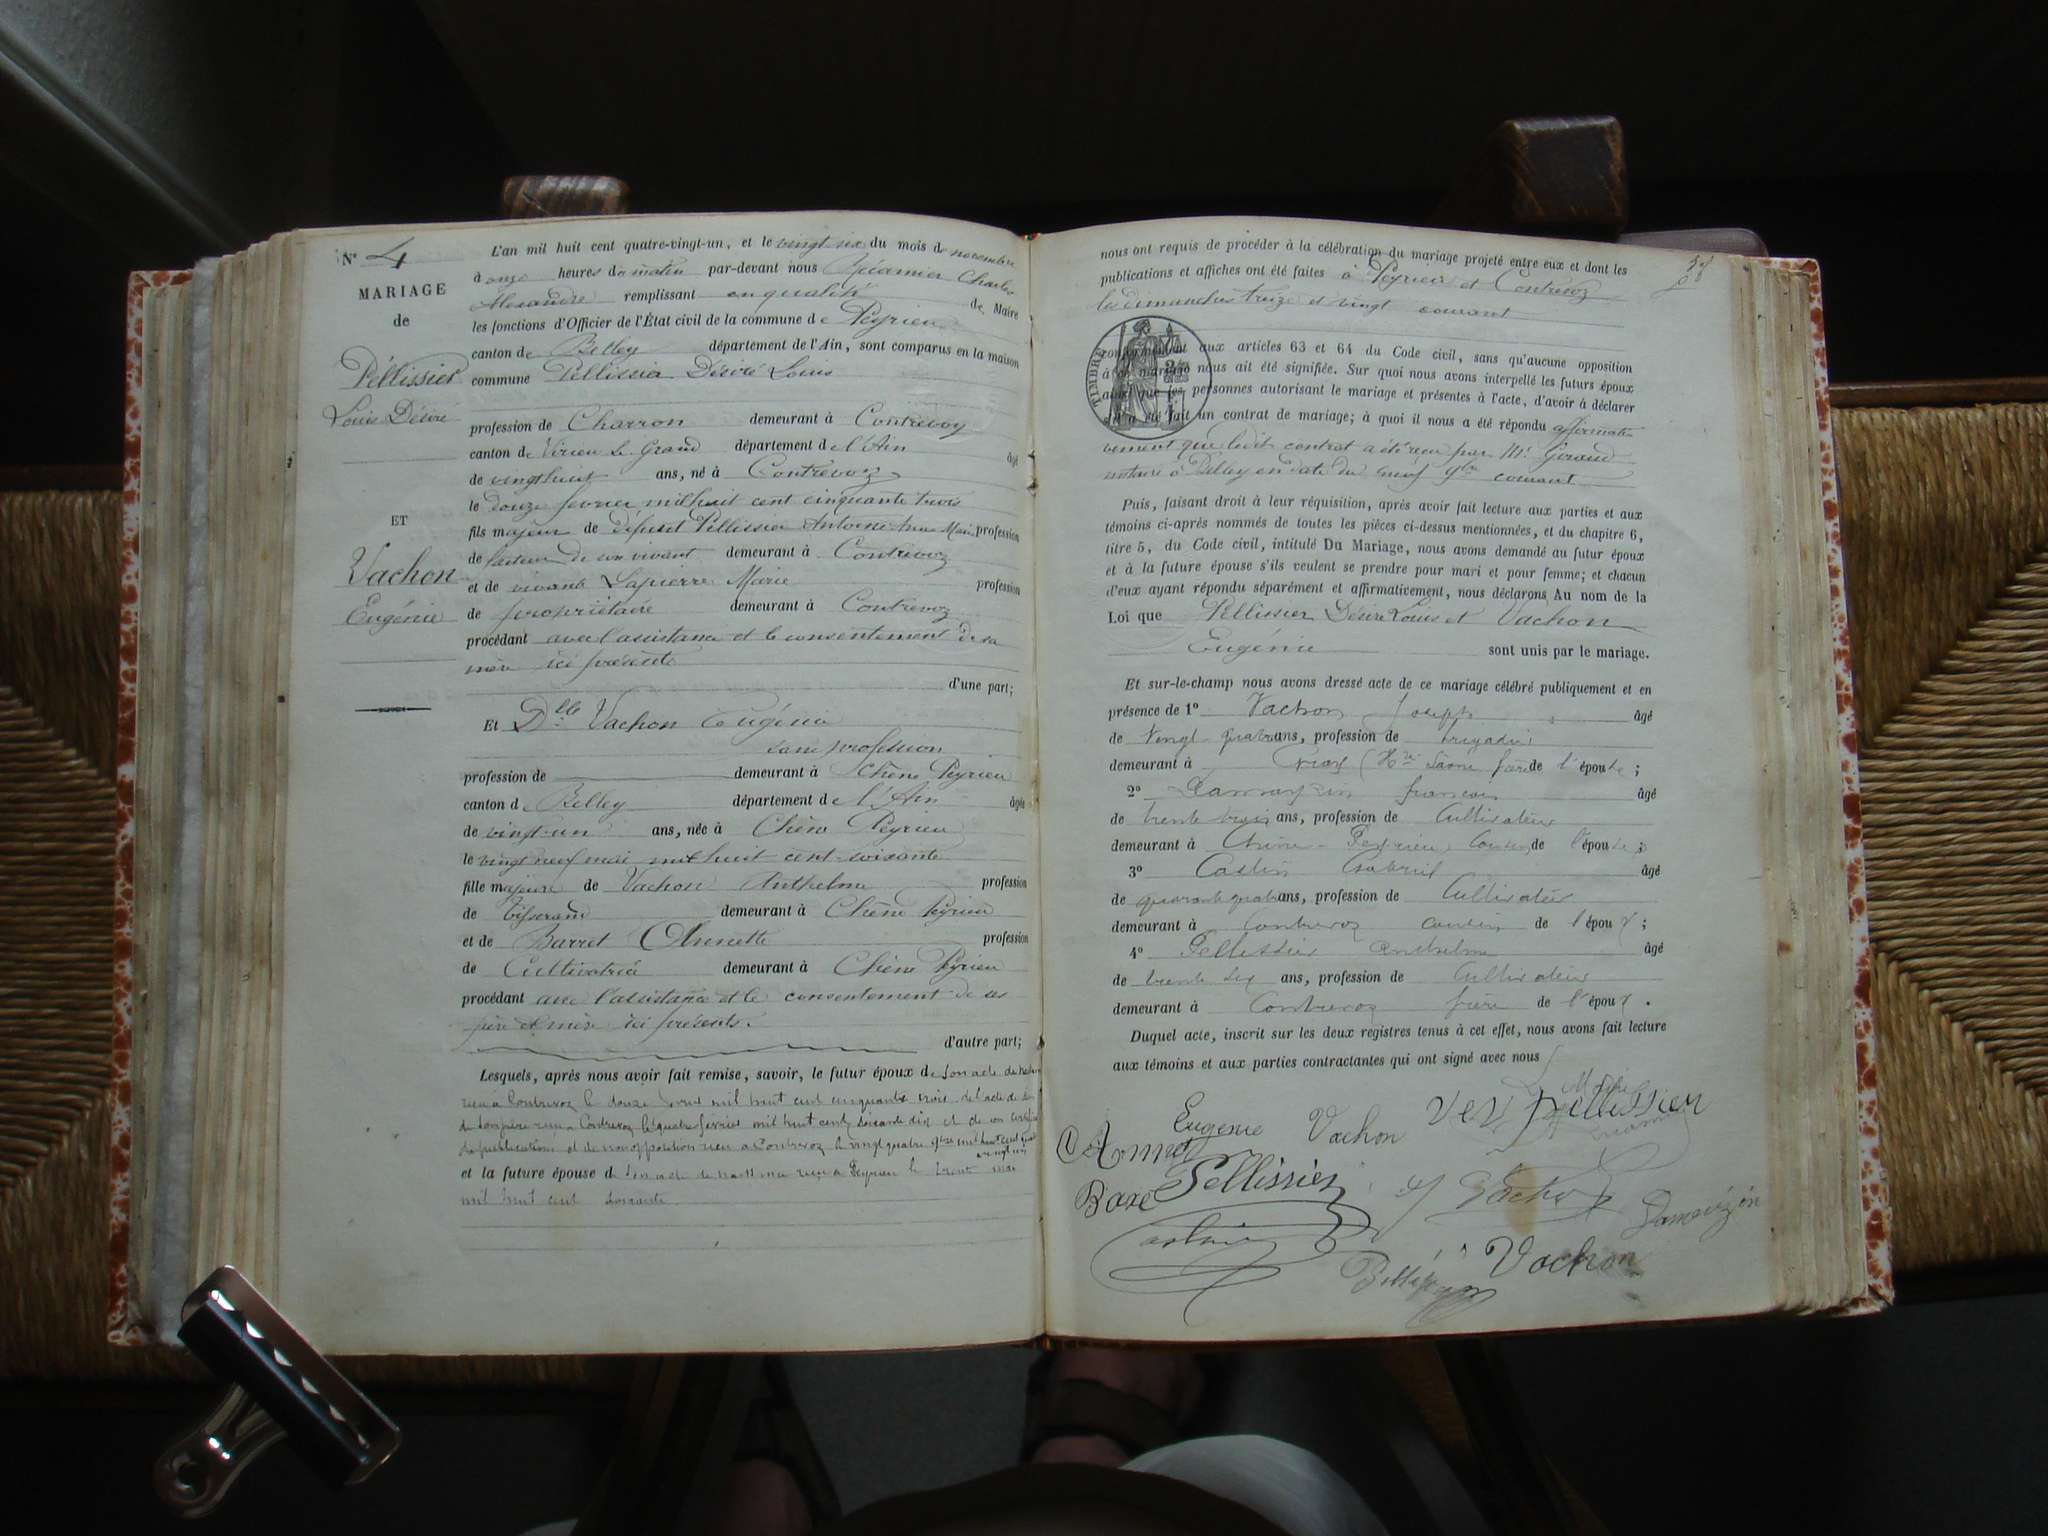 N° 4
MARIAGE
de
Péllissier
Louis Désiré
ET
Vachon
Eugénie
L'an mil huit cent quatre-vingt-un, et le vingt six du mois de novembre
à onze heures du matin par-devant nous Récamier Charles
Alexandre remplissant en qualité de Maire
les fonctions d'Officier de l'État civil de la commune de Peyrieu
canton de Belley département de l'Ain, sont comparus en la maison
commune Pellissier Désiré Louis
profession de Charron demeurant à Contrevoz
canton de Virieu Le Grand département de l'Ain âgé
de vingt huit ans, né à Contrevoz
le douze fevrier mil huit cent cinquante trois
fils majeur de défunt Pellissier Antoine Anne Marie profession
de facteur de son vivant demeurant à Contrevoz
et de vivante Lapierre Marie profession
de propriétaire demeurant à Contrevoz
procédant avec l'assistance et le consentement de sa
mère ici présente
d'une part;
Et Dlle Vachon Eugénie
sans profession
profession de demeurant à Chêne Peyrieu
canton de Belley département de l'Ain âgée
de vingt-un ans, née à Chêne Peyrieu
le vingt neuf mai mil huit cent soixante
fille majeure de Vachon Anthelme profession
de tisserand demeurant à Chêne Peyrieu
et de Barret Annette profession
de Cultivatrice demeurant à Chêne Peyrieu
procédant avec l'assistance et le consentement de ses
père et mère ici présents.
d'autre part;
Lesquels, après nous avoir fait remise, savoir, le futur époux de son acte de
à Contrevoz le douze mil huit cent cinquante trois de l'acte de
à Contrevoz le quatre février mil huit cent soixante dix et de un certificat
de publications et de non opposition à Contrevoz le vingt quatre 9bre mil huit cent quatre
vingt un
et la future épouse d son acte de naissance reçu à Peyrieu le trente mai
mil huit cent soixante
nous ont requis de procéder à la célébration du mariage projeté entre eux et dont les
publications et affiches ont été faites à Peyrieu et Contrevoz
les dimanches treize et vingt courant
TIMBRE
conformément aux articles 63 et 64 du Code civil, sans qu'aucune opposition
à ce mariage nous ait été signifiée. Sur quoi nous avons interpellé les futurs époux
ainsi que les personnes autorisant le mariage et présentes à l'acte, d'avoir à déclarer
s'il a été fait un contrat de mariage; à quoi il nous a été répondu affirmati-
vement que ledit contrat a été reçu par Me Giraud
notaire à Belley en date du neuf 9bre courant
Puis, faisant droit à leur réquisition, après avoir fait lecture aux parties et aux
témoins ci-après nommés de toutes les pièces ci-dessus mentionnées, et du chapitre 6,
titre 5, du Code civil, intitulé Du Mariage, nous avons demandé au futur époux
et à la future épouse s'ils veulent se prendre pour mari et pour femme; et chacun
d'eux ayant répondu séparément et affirmativement, nous déclarons Au nom de la
Loi que Pellissier Désiré Louis et Vachon
Eugénie sont unis par le mariage.
Et sur-le-champ nous avons dressé acte de ce mariage célébré publiquement et en
présence de 1° Vachon Joseph âgé
de vingt quatre ans, profession de brigadier
demeurant à (Hte Saône frère de l'épouse;
2° françois âgé
de trente trois ans, profession de Cultivateur
demeurant à Chêne-Peyrieu Cousin de l'épouse;
3° Castin Gabriel âgé
de quarante quatre ans, profession de Cultivateur
demeurant à Contrevoz cousin de l'époux;
4° Pellissier Anthelme âgé
de trente six ans, profession de Cultivateur
demeurant à Contrevoz frère de l'époux.
Duquel acte, inscrit sur les deux registres tenus à cet effet, nous avons fait lecture
aux témoins et aux parties contractantes qui ont signé avec nous
Eugenie Vachon Pellissier
Pellissier
Vachon